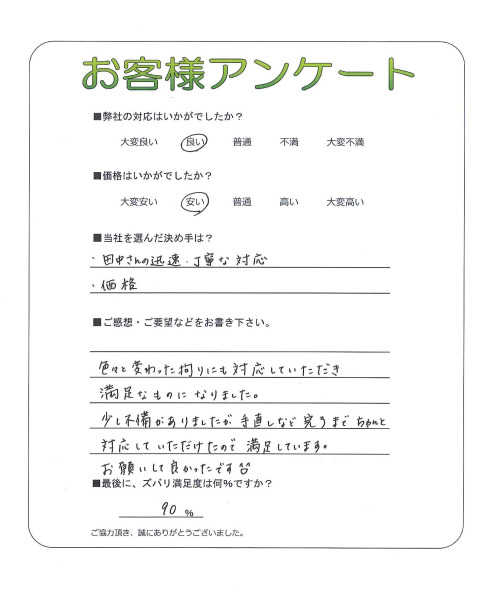 お客様アンケート
■弊社の対応はいかがでしたか？
大変良い 良い 普通 不満 大変不満
■価格はいかがでしたか？
大変安い 安い 普通 高い 大変高い
■当社を選んだ決め手は？
・田中さんの迅速・丁寧な対応
・価格
■ご感想・ご要望などをお書き下さい。
色々と変わった拘りにも対応していただき
満足なものになりました。
少し不備がありましたが手直しなど完了まで ちゃんと
対応していただけたので満足しています。
お願いして良かったです
■最後に、ズバリ満足度は何％ですか？
90 ％
ご協力頂き、誠にありがとうございました。